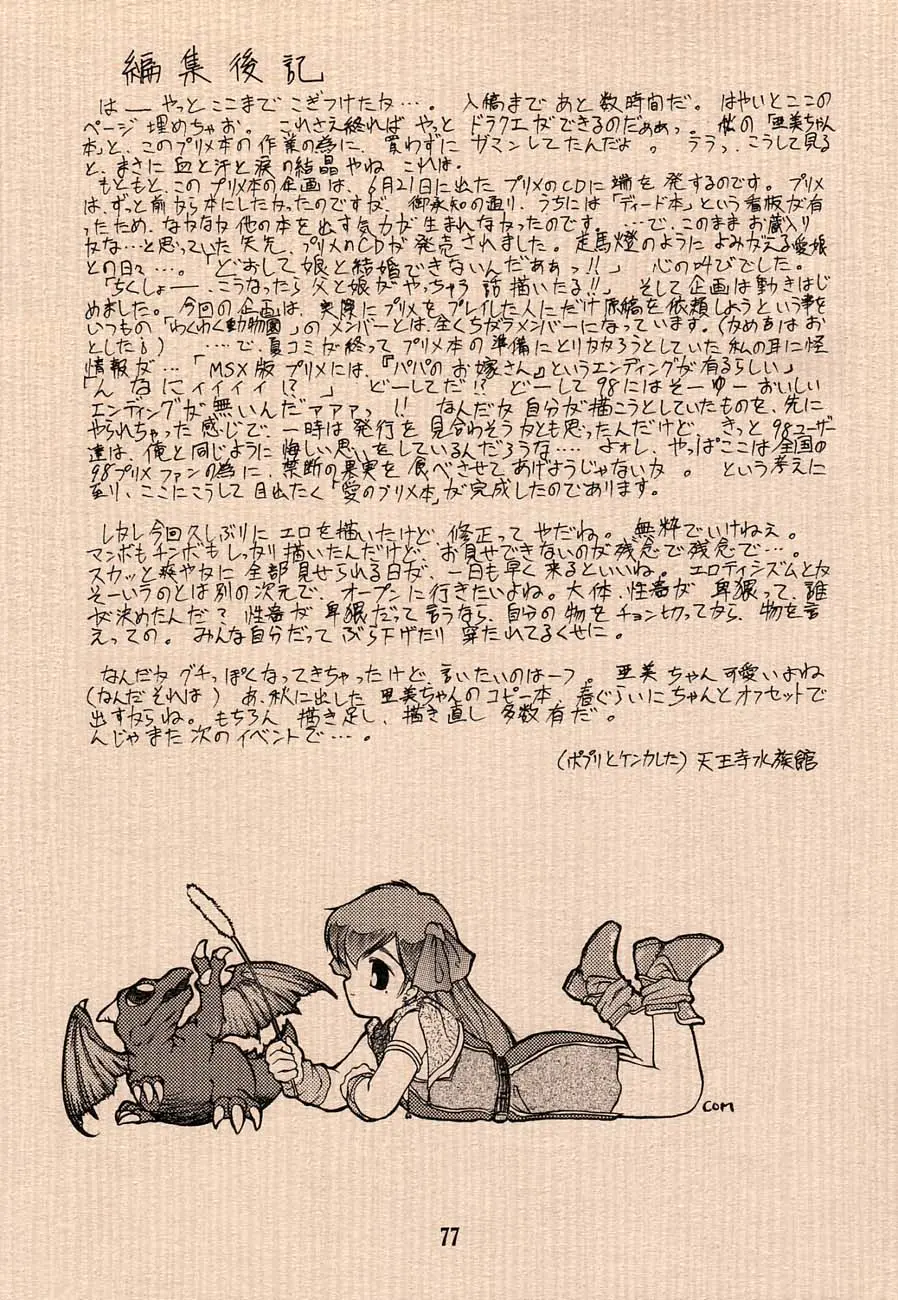 編集後記
はー やっとここまで こぎつけたか…。 入稿まで あと数時間だ。 はやいとこ この
ページ埋めちゃお。 これさえ終れば やっと ドラクエができるのだぁぁっ。 秋の「亜美ちゃん
本」と、このプリメ本の作業の為に、買わずに ガマンしてたんだよ。 ララっ、こうして見る
と、まさに血と汗と涙の結晶やね これは。
もともと、このプリメ本の企画は、6月21日に出た プリメのCDに端を発するのです。 プリメ
は、ずっと前から本にしたかったのですが、御承知の通り、うちには「ディード本」という看板が有
ったため、なかなか他の本を出す気力が生まれなかったのです。 …で、このままお蔵入り
かな…と思っていた矢先、プリメのCDが発売されました。 走馬燈のように よみがえる愛娘
との日々…。「どおして娘と結婚できないんだぁぁっ!!」 心の叫びでした。
「ちくしょー、こうなったら父と娘がやっちゃう話描いたる!!」 そして企画は動きはじ
めました。 今回の企画は、実際にプリメをプレイした人にだけ原稿を依頼しようという事で
いつもの「わくわく動物園」のメンバーとは、全くちがうメンバーになっています。(なめ吉はお
とした♪) …で、夏コミが終って プリメ本の準備にとりかかろうとしていた 私の耳に怪
情報が…「MSX版プリメには、『パパのお嫁さん』というエンディングが有るらしい」
「んなにィィィィ!?」 どーしてだ!? どーして98にはそーゆーおいしい
エンディングが無いんだァァァっ!! なんだか自分が描こうとしていたものを、先に
やられちゃった感じで、一時は発行を見合わそうかとも思ったんだけど、きっと98ユーザー
達は、俺と同じように悔しい思いをしているんだろうな…。 よォし、やっぱここは全国の
98プリメファンの為に、禁断の果実を食べさせてあげようじゃないか。 という考えに
至り、ここにこうして目出たく「愛のプリメ本」が完成したのであります。
しかし今回久しぶりにエロを描いたけど、修正ってやだね。 無粋でいけねぇ。
マンボもチンボもしっかり描いたんだけど、お見せできないのが残念で残念で…。
スカッと爽やかに全部見せられる日が、一日も早く来るといいね。 エロティシズムとか
そーいうのとは別の次元で、オープンに行きたいよね。 大体、性器が卑猥って、誰
が決めたんだ? 性器が卑猥だって言うなら、自分の物をチョン切ってから、物を言
えっての。 みんな自分だってぶら下げたり 穿たれてるくせに。
なんだかグチっぽくなってきちゃったけど、言いたいのは一つ。 亜美ちゃん可愛いよね
(なんだそれは) あ、秋に出した 亜美ちゃんのコピー本、春ぐらいにちゃんとオフセットで
出すからね。 もちろん描き足し、描き直し 多数有だ。
んじゃまた次のイベントで…。
(ポプリとケンカした) 天王寺水族館
COM
77